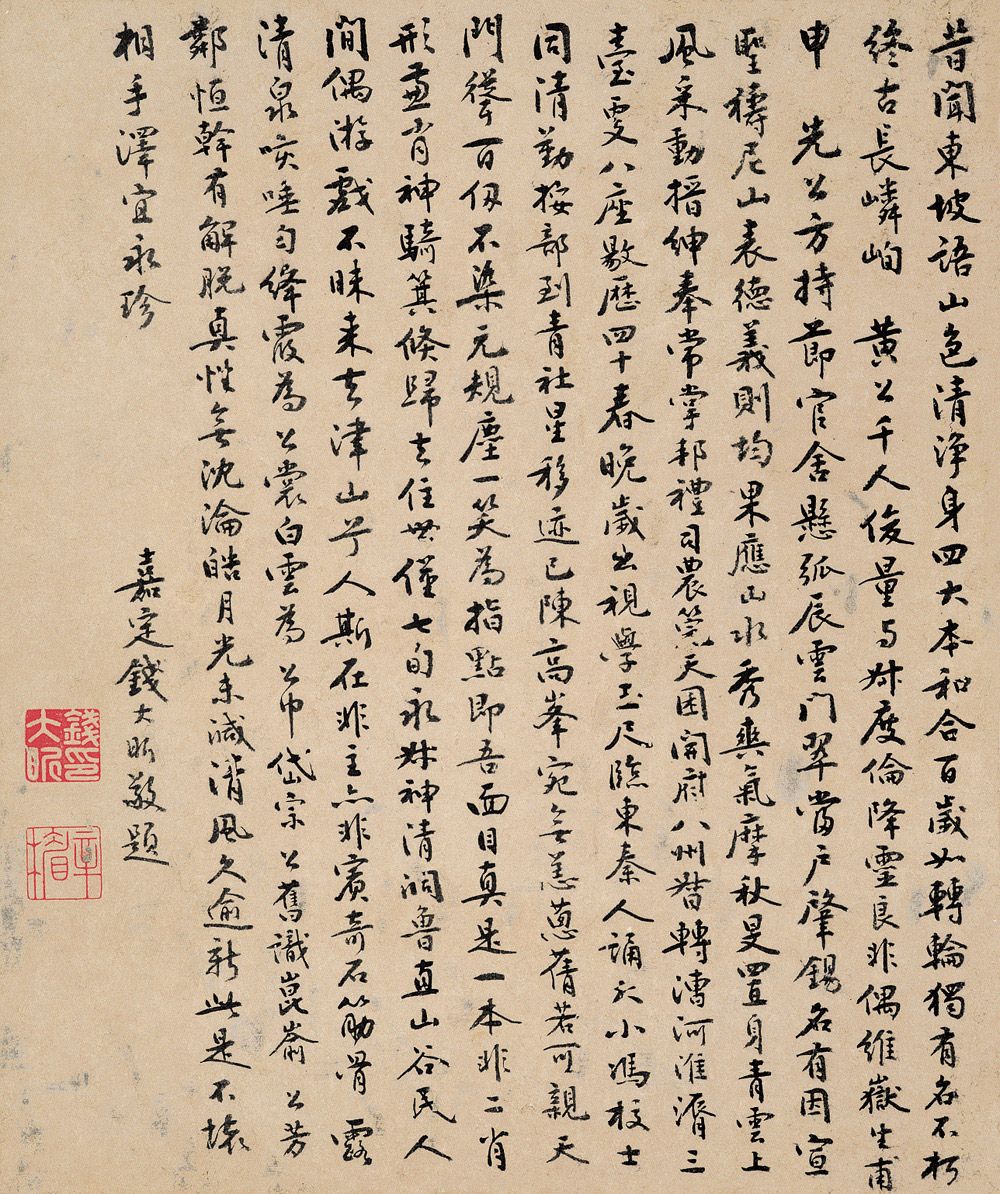 昔聞東坡語山色清淨身四大本和合百歲如轉輪獨有名不朽
終古長嶙峋　黃公千人俊量與叔度倫降靈良非偶維嶽生甫
申　光公方持節官舍懸弧辰雲門翠當戶肇錫名有因宣
聖禱尼山表德義則均果應山水秀爽氣摩秋旻置身青雲上
風采動搢紳奉常掌邦禮司農筦天囷開府八州督轉漕河淮漘三
臺更八座敭歷四十春晚歲出視學玉尺臨東秦人誦大小馮校士
同清勤按部到青社星移迹已陳高峯宛無恙蔥蒨若可親天
門聳百仞不染元規塵一笑為指點即吾面目真是一本非二肖
形兼肖神騎箕倏歸去住世僅七旬永叔神清洞魯直山谷民人
間偶游戲不昧來去津山兮人斯在非主亦非賓奇石筋骨露
清泉咳唾勻絳霞為公裳白雲為公巾岱宗公舊識崑崙公芳
鄰恒幹有解脫真性無沈淪皓月光未減清風久逾新此是不壞
相手澤宜永珍
嘉定錢大昕敬題
錢大昕印
辛楣